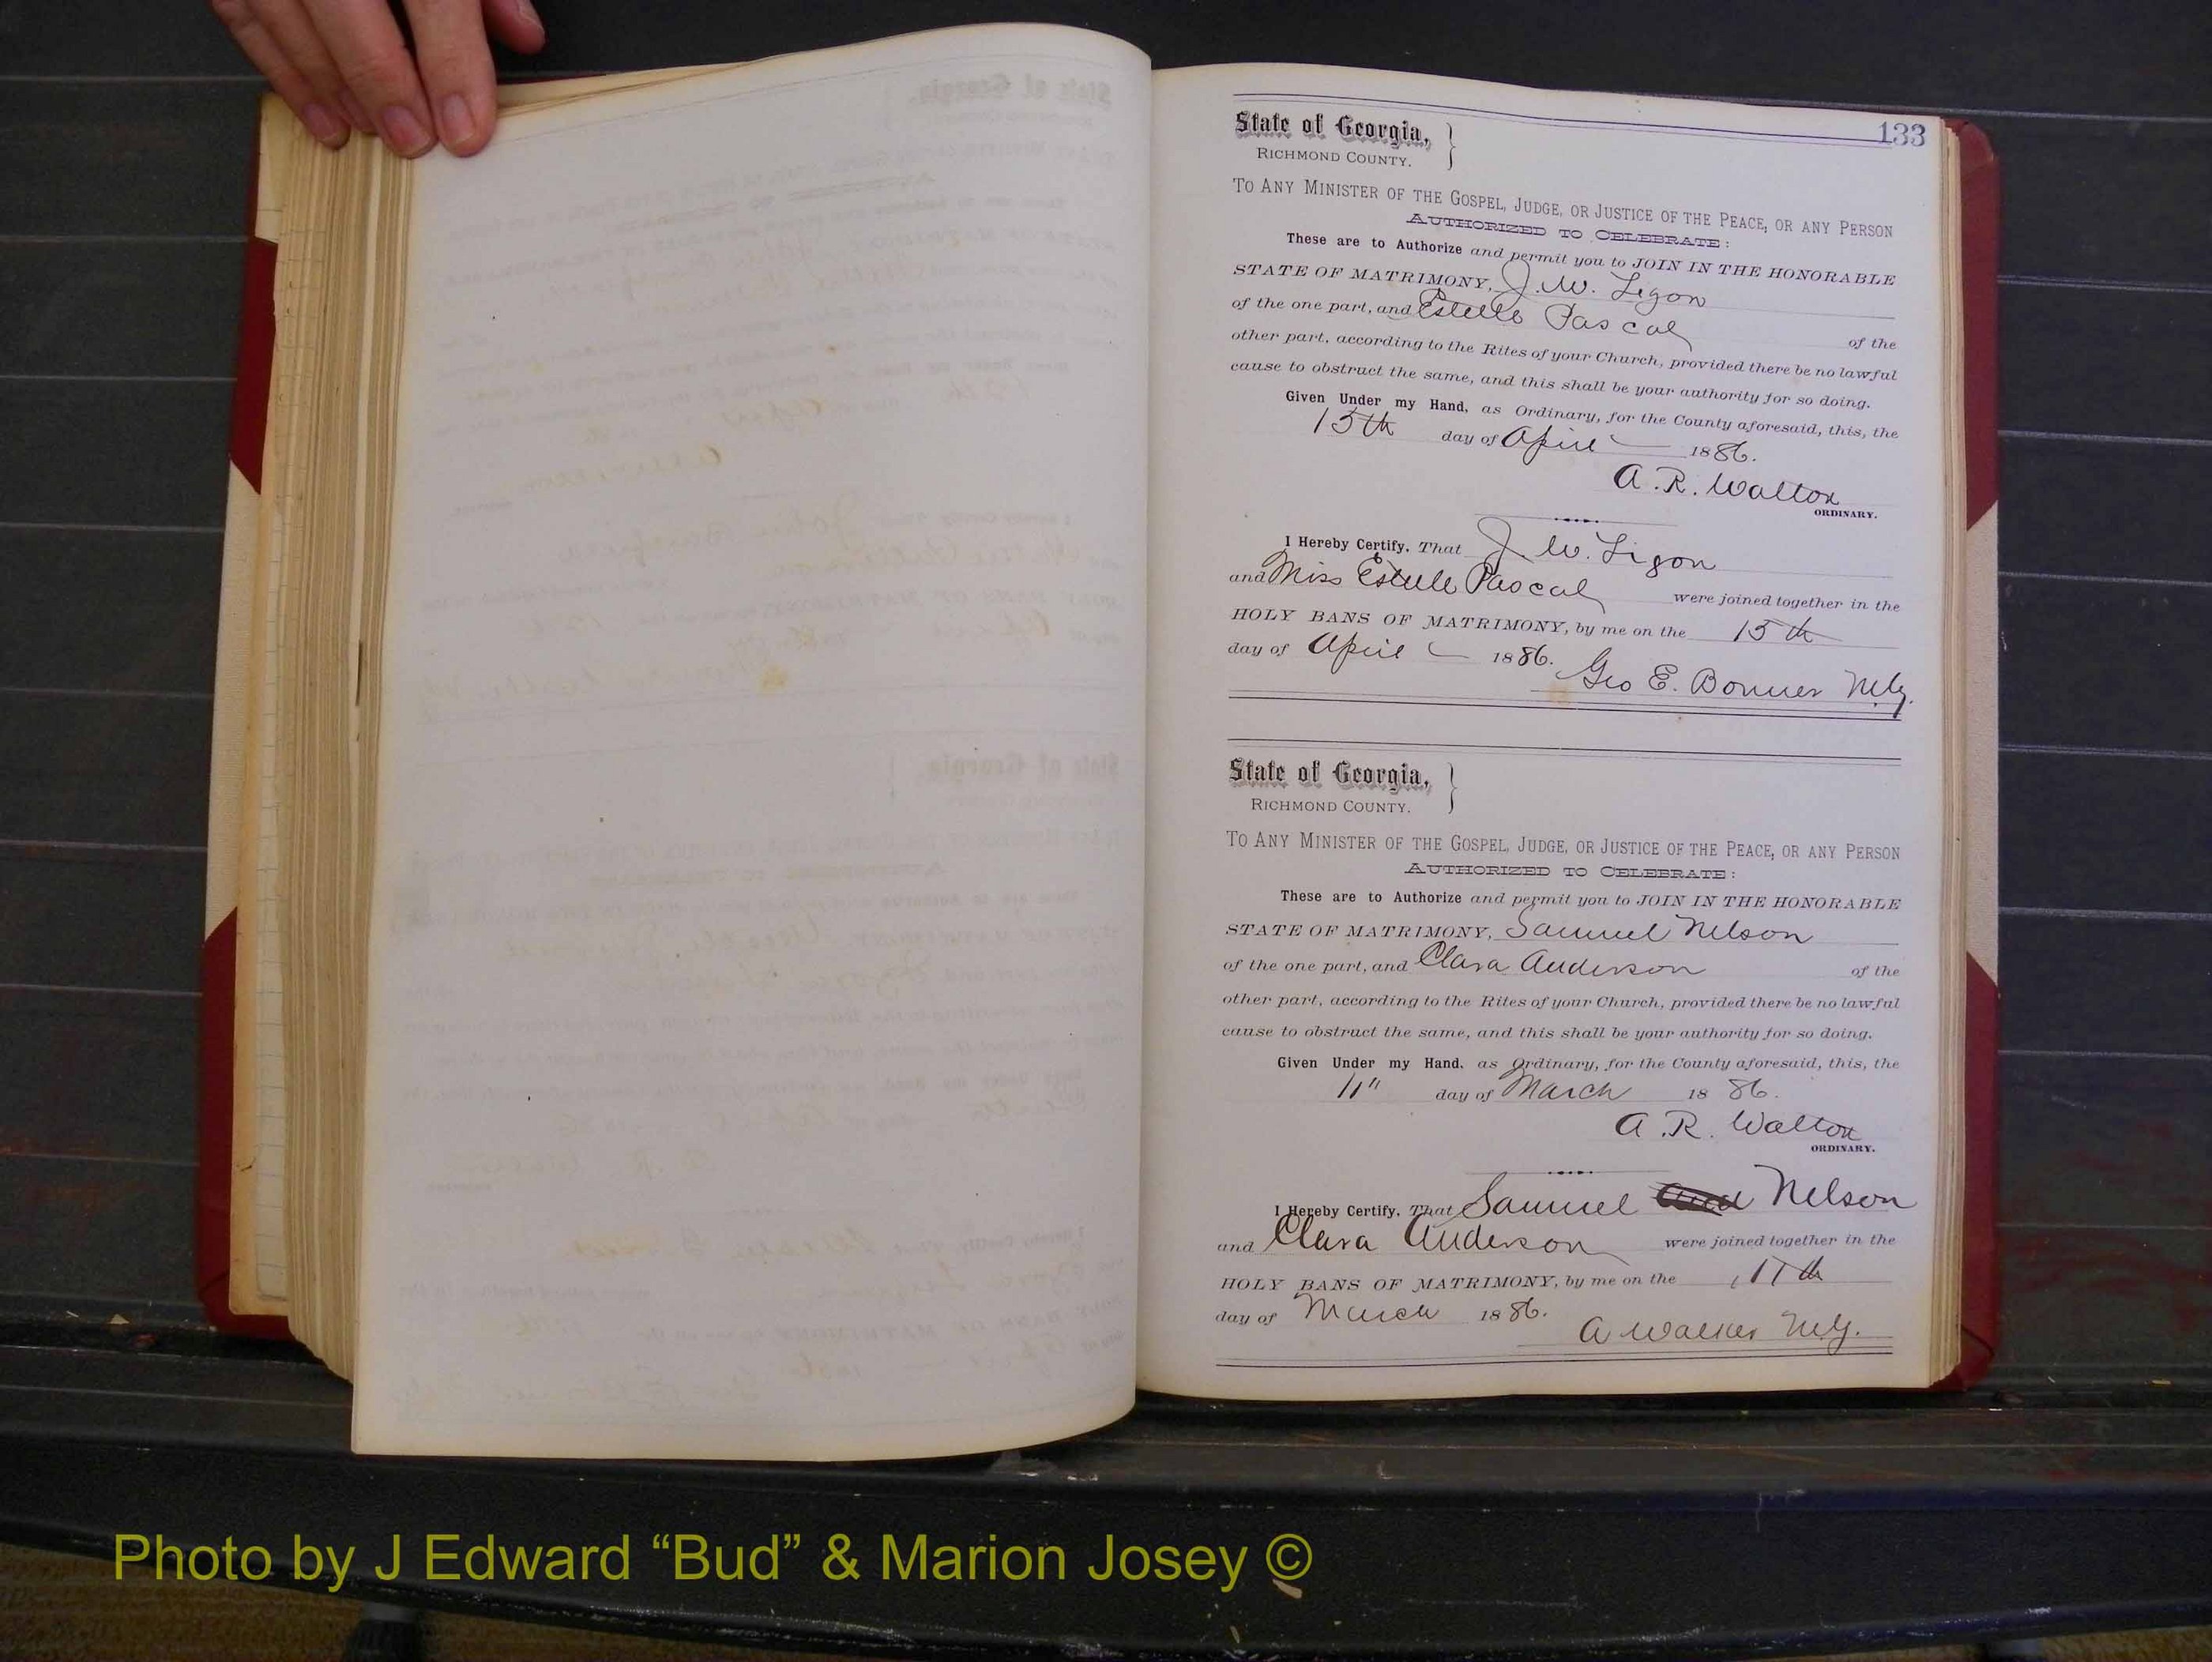 133
State of Georgia,
RICHMOND COUNTY.
TO ANY MINISTER OF THE GOSPEL, JUDGE, OR JUSTICE OF THE PEACE, OR ANY PERSON
AUTHORIZED TO CELEBRATE:
These are to Authorize and permit you to JOIN IN THE HONORABLE
STATE OF MATRIMONY, J. W. Ligon
of the one part, and Estelle Pascal of the
other part, according to the Rites of your Church, provided there be no lawful
cause to obstruct the same, and this shall be your authority for so doing.
Given Under my Hand, as Ordinary, for the County aforesaid, this, the
15th day of April 1886.
A. R. Walton
ORDINARY.
I Hereby Certify, That J. W. Ligon
and Miss Estelle Pascal were joined together in the
HOLY BANS OF MATRIMONY, by me on the 15th
day of April 1886. Geo E. Bonner M.G.
State of Georgia,
RICHMOND COUNTY.
TO ANY MINISTER OF THE GOSPEL, JUDGE, OR JUSTICE OF THE PEACE, OR ANY PERSON
AUTHORIZED TO CELEBRATE:
These are to Authorize and permit you to JOIN IN THE HONORABLE
STATE OF MATRIMONY, Samuel Nelson
of the one part, and Clara Anderson of the
other part, according to the Rites of your Church, provided there be no lawful
cause to obstruct the same, and this shall be your authority for so doing.
Given Under my Hand, as Ordinary, for the County aforesaid, this, the
11" day of March 1886.
A. R. Walton
ORDINARY.
I Hereby Certify, That Samuel Nelson
and Clara Anderson were joined together in the
HOLY BANS OF MATRIMONY, by me on the 11th
day of March 1886.
A Walker M.G.
Photo by J Edward “Bud” & Marion Josey ©